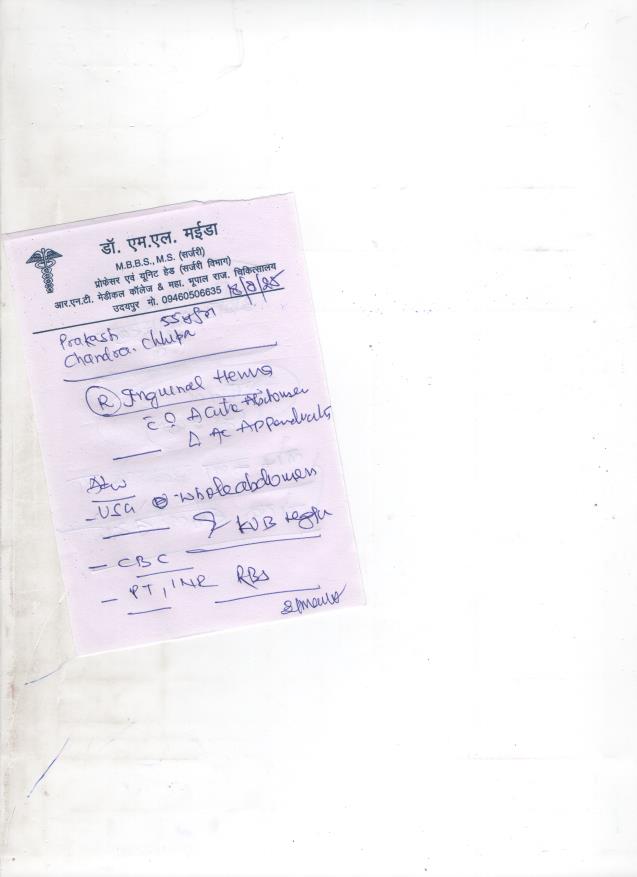 डॉ. एम.एल. मईडा
M.B.B.S., M.S. (सर्जरी)
प्रोफेसर एवं यूनिट हेड (सर्जरी विभाग)
आर.एन.टी. मेडीकल कॉलेज & महा. भूपाल राज. चिकित्सालय
उदयपुर मो. 09460506635
Prakash
Chandra.
(R) Inguinal Hernia
c̄ ? Acute Abdomen
△ Ac Appendicitis
Adv
- USG whole abdomen
& KUB region
- CBC
- PT, INR RBS